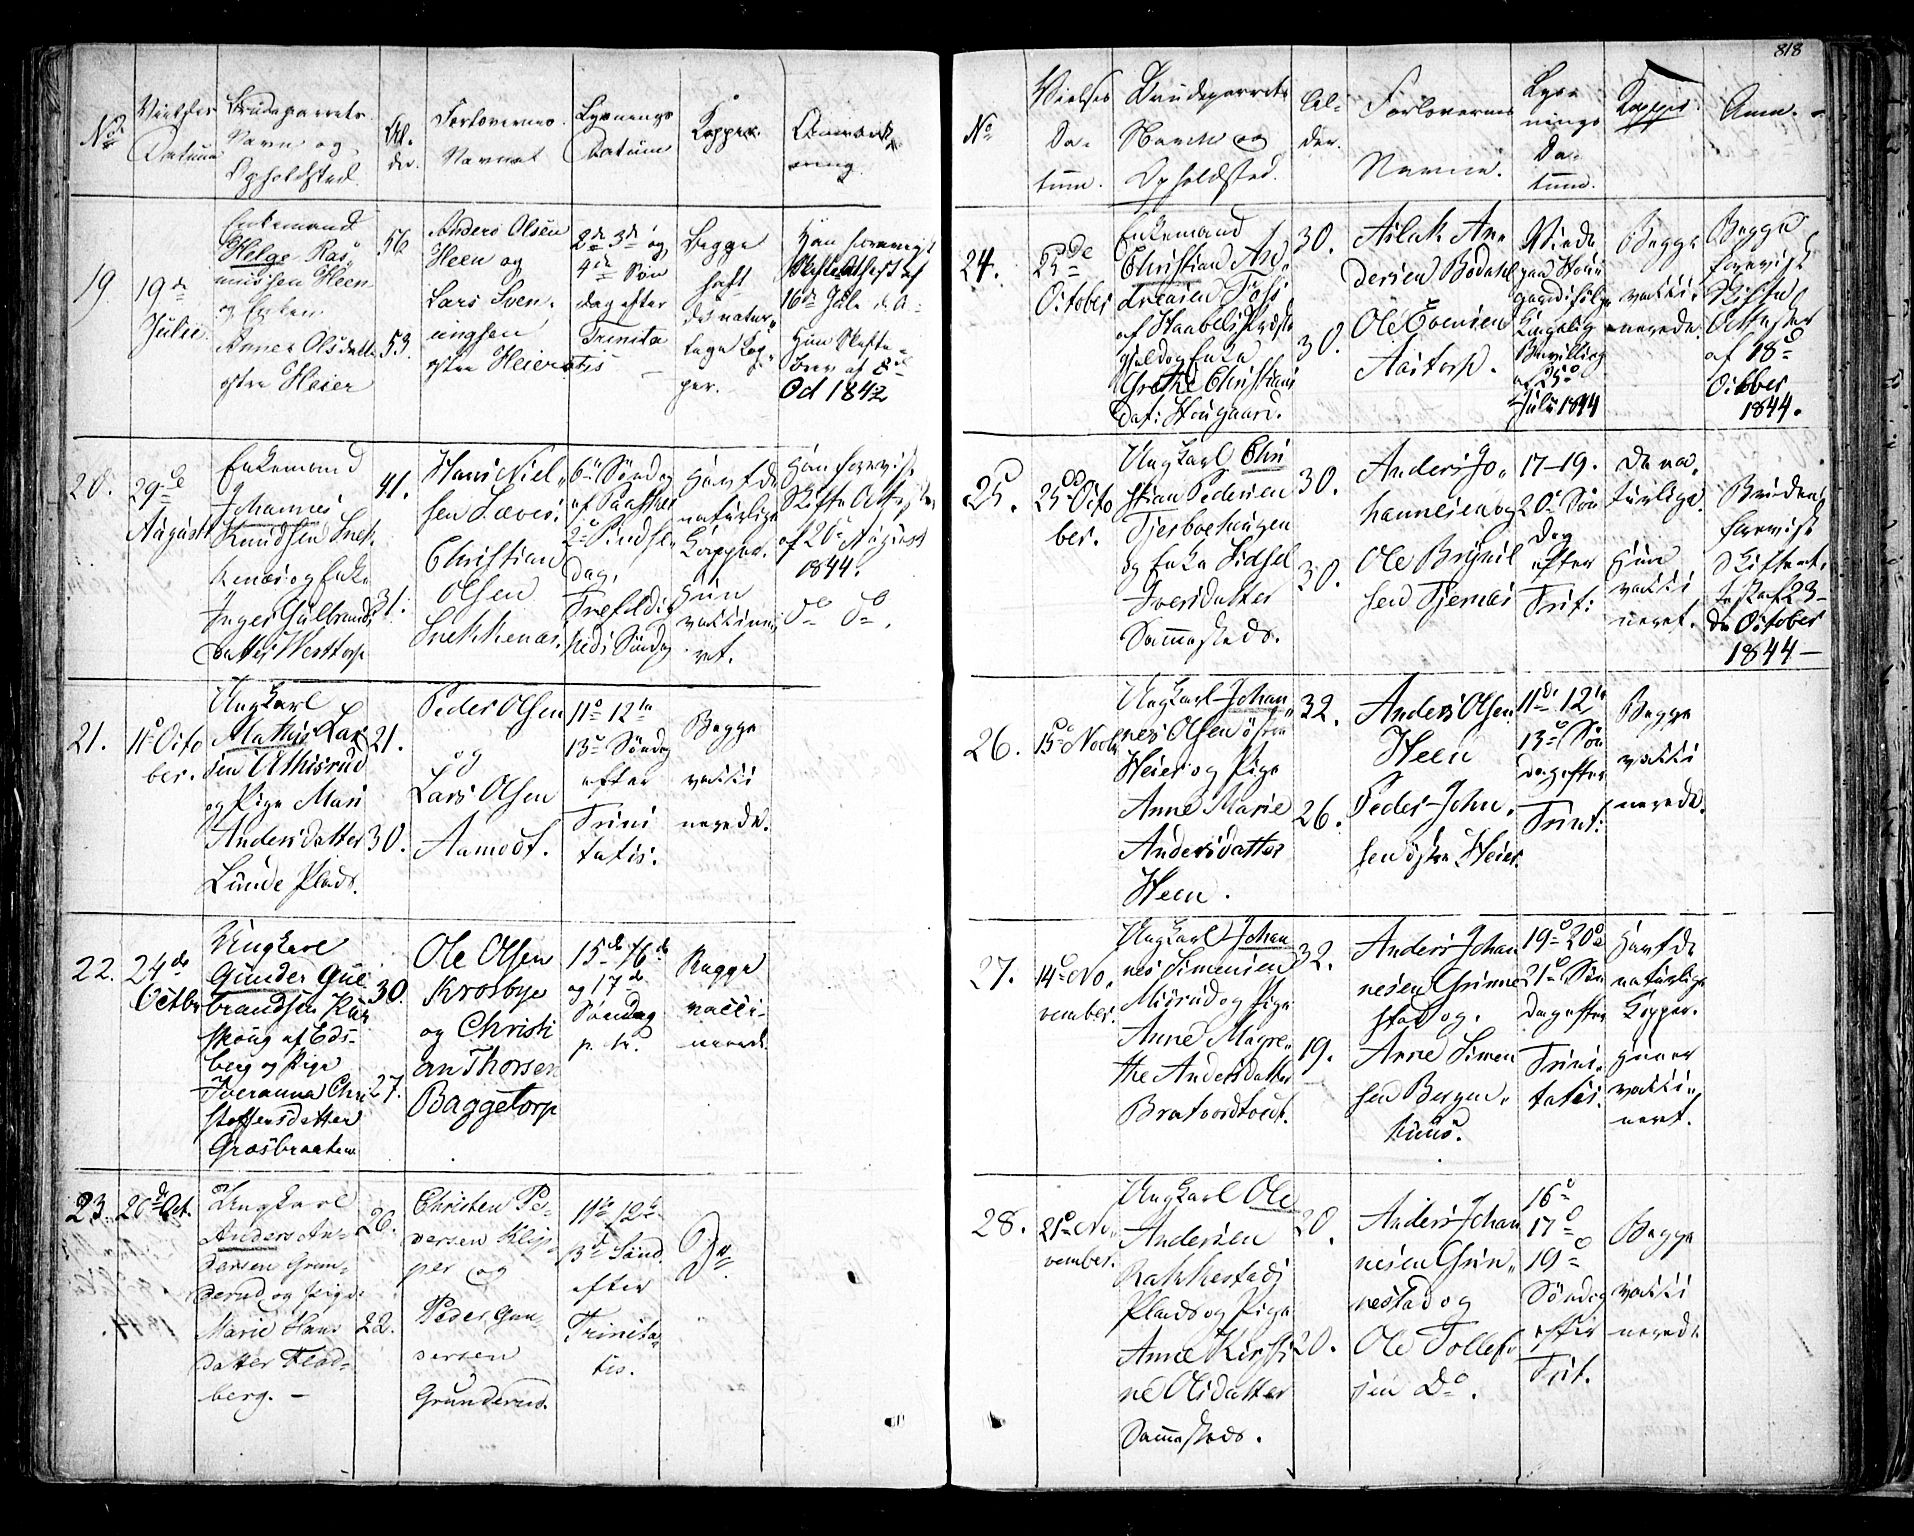 818
No
Vielses
Datum
Brudeparrets
Navn og
Opholdsted.
Al-
der.
Forlovernes
Navne
Lysnings
Datum
Kopper.
Anmærk-
ning.
19
19de
Julii.
Enkemand
Helge Ras-
mussen Heen
og Enken
Anne Olsdatter
østre Heier
56
53.
Anders Olsen
Heen og
Lars Sven-
ningsen
østre Heier
2de 3de og
4de Søn
dag efter
Trinita
tis
Begge
haft
de natur-
lige Kop-
per.
Han foreviigt
Skifte Attest af
16de Julii d. A.
Hun Skifte-
brev af 8de
Oct 1842
20.
29de
August
Enkemand
Johannes
Knudsen Snek
kenæs og Enke
Inger Gulbrands
datter Westtorp
41.
31.
Hans Niel-
sen
Christian
Olsen
Snekkenæs.
6te Søndag
af Paaske
2de Pindse
Dag,
Trefoldig
heds Søndag
Havt de
naturlige
Kopper.
Hun
vaccine
ret.
Han forevist
Skifte Attest
af 26de August
1844.
do do.
21.
11te Octo
ber.
Ungkarl
Mathis Lar
sen Athisrud
og Pige Mari
Andersdatter
Lunde Plads.
21.
30.
Peder Olsen
og
Lars Olsen
Aamodt.
11te 12te
13de Søndag
efter
Trini
tatis.
Begge
vakki
nerede.
22.
24de
Octbr
Ungkarl
Gunder Gul
brandsen
skoug af Eds-
berg og Pige
Iveranna Chri
stoffersdatter
Græsbraaten
30.
27.
Ole Olsen
Krosbye
og Christi
an Thorsen
Baggetorp
15de 16de
og 17de
Søndag
p. tr.
Begge
vacci-
nerede.
23.
26de Oct.
Ungkarl
Anders An-
dersen Grun-
derud og Pige
Marie Hans
datter Flod-
berg. –
26.
22.
Christen Pe-
dersen Klep-
per og
Peder Gun
dersen
Grunderud.
11te 12te
13de Sønd.
efter
Trinita-
tis.
Do
No
Vielses
Da-
tum.
Brudeparrets
Navne og
Opholdsted.
Al-
der.
Forlovernes
Navne.
Lys-
nings
Da-
tum.
Kopper.
Anm. –
24.
25de
October
Enkemand
Christian And-
reasen Foss
af Haabøls Præste
gjeld og Enke
Grethe Christians
Dat: Hougaard.
30.
30.
Aslak An-
dersen Bodahl
Ole Evensen
Aastorp.
Viede
paa
Kongelig
Bevilling
af 25de
Julii 1844
Begge
vakki-
nerede.
Begge
forevist
Skifte
Attester
af 18de
October
1844.
25.
25de Octo
ber.
Ungkarl Chri
stian Pedersen
Tjerboehougen
og Enke Sidsel
Iversdatter
Sammesteds.
30.
30.
Anders Jo-
hannesen og
Ole Brynil
sen Tjernæs
17–19.
20de Søn
dag
efter
Trit:
De na-
turlige.
Hun
vakki
neret.
Bruden
forevist
Skifteat-
test af 23–
de October
1844 –
26.
15de Novbr
Ungkarl Johan
nes Olsen østre
Heier og Pige
Anne Marie
Andersdatter
Heen.
32.
26.
Anders Olsen
Heen
Peder John-
sen østre Heier.
11de 12te
13de Søn
dag efter
Trint:
Begge
vakki
nerede.
27.
14de No-
vember.
Ungkarl Johan
nes Simensen
Misrud og Pige
Anne Magre-
the Andersdatter
Bratvordtvedt.
32.
19.
Anders Johan
nesen Grinne
stad og.
Arne Simen
sen Bergen-
huus.
19de 20de
21de Søn
dag efter
Trini-
tatis.
Havt de
naturlige
Kopper.
Hun er
vakki-
neret.
28.
21de No-
vember.
Ungkarl Ole
Andersen
Rakkestads
Plads og Pige
Anne Kirsti
ne Olsdatter
Sammesteds.
20.
20.
Anders Johan
nesen Grin-
nestad og
Ole Tollef-
sen Do.
16de
17de
19de
Søndag
efter
Trit.
Begge
vakki
nerede